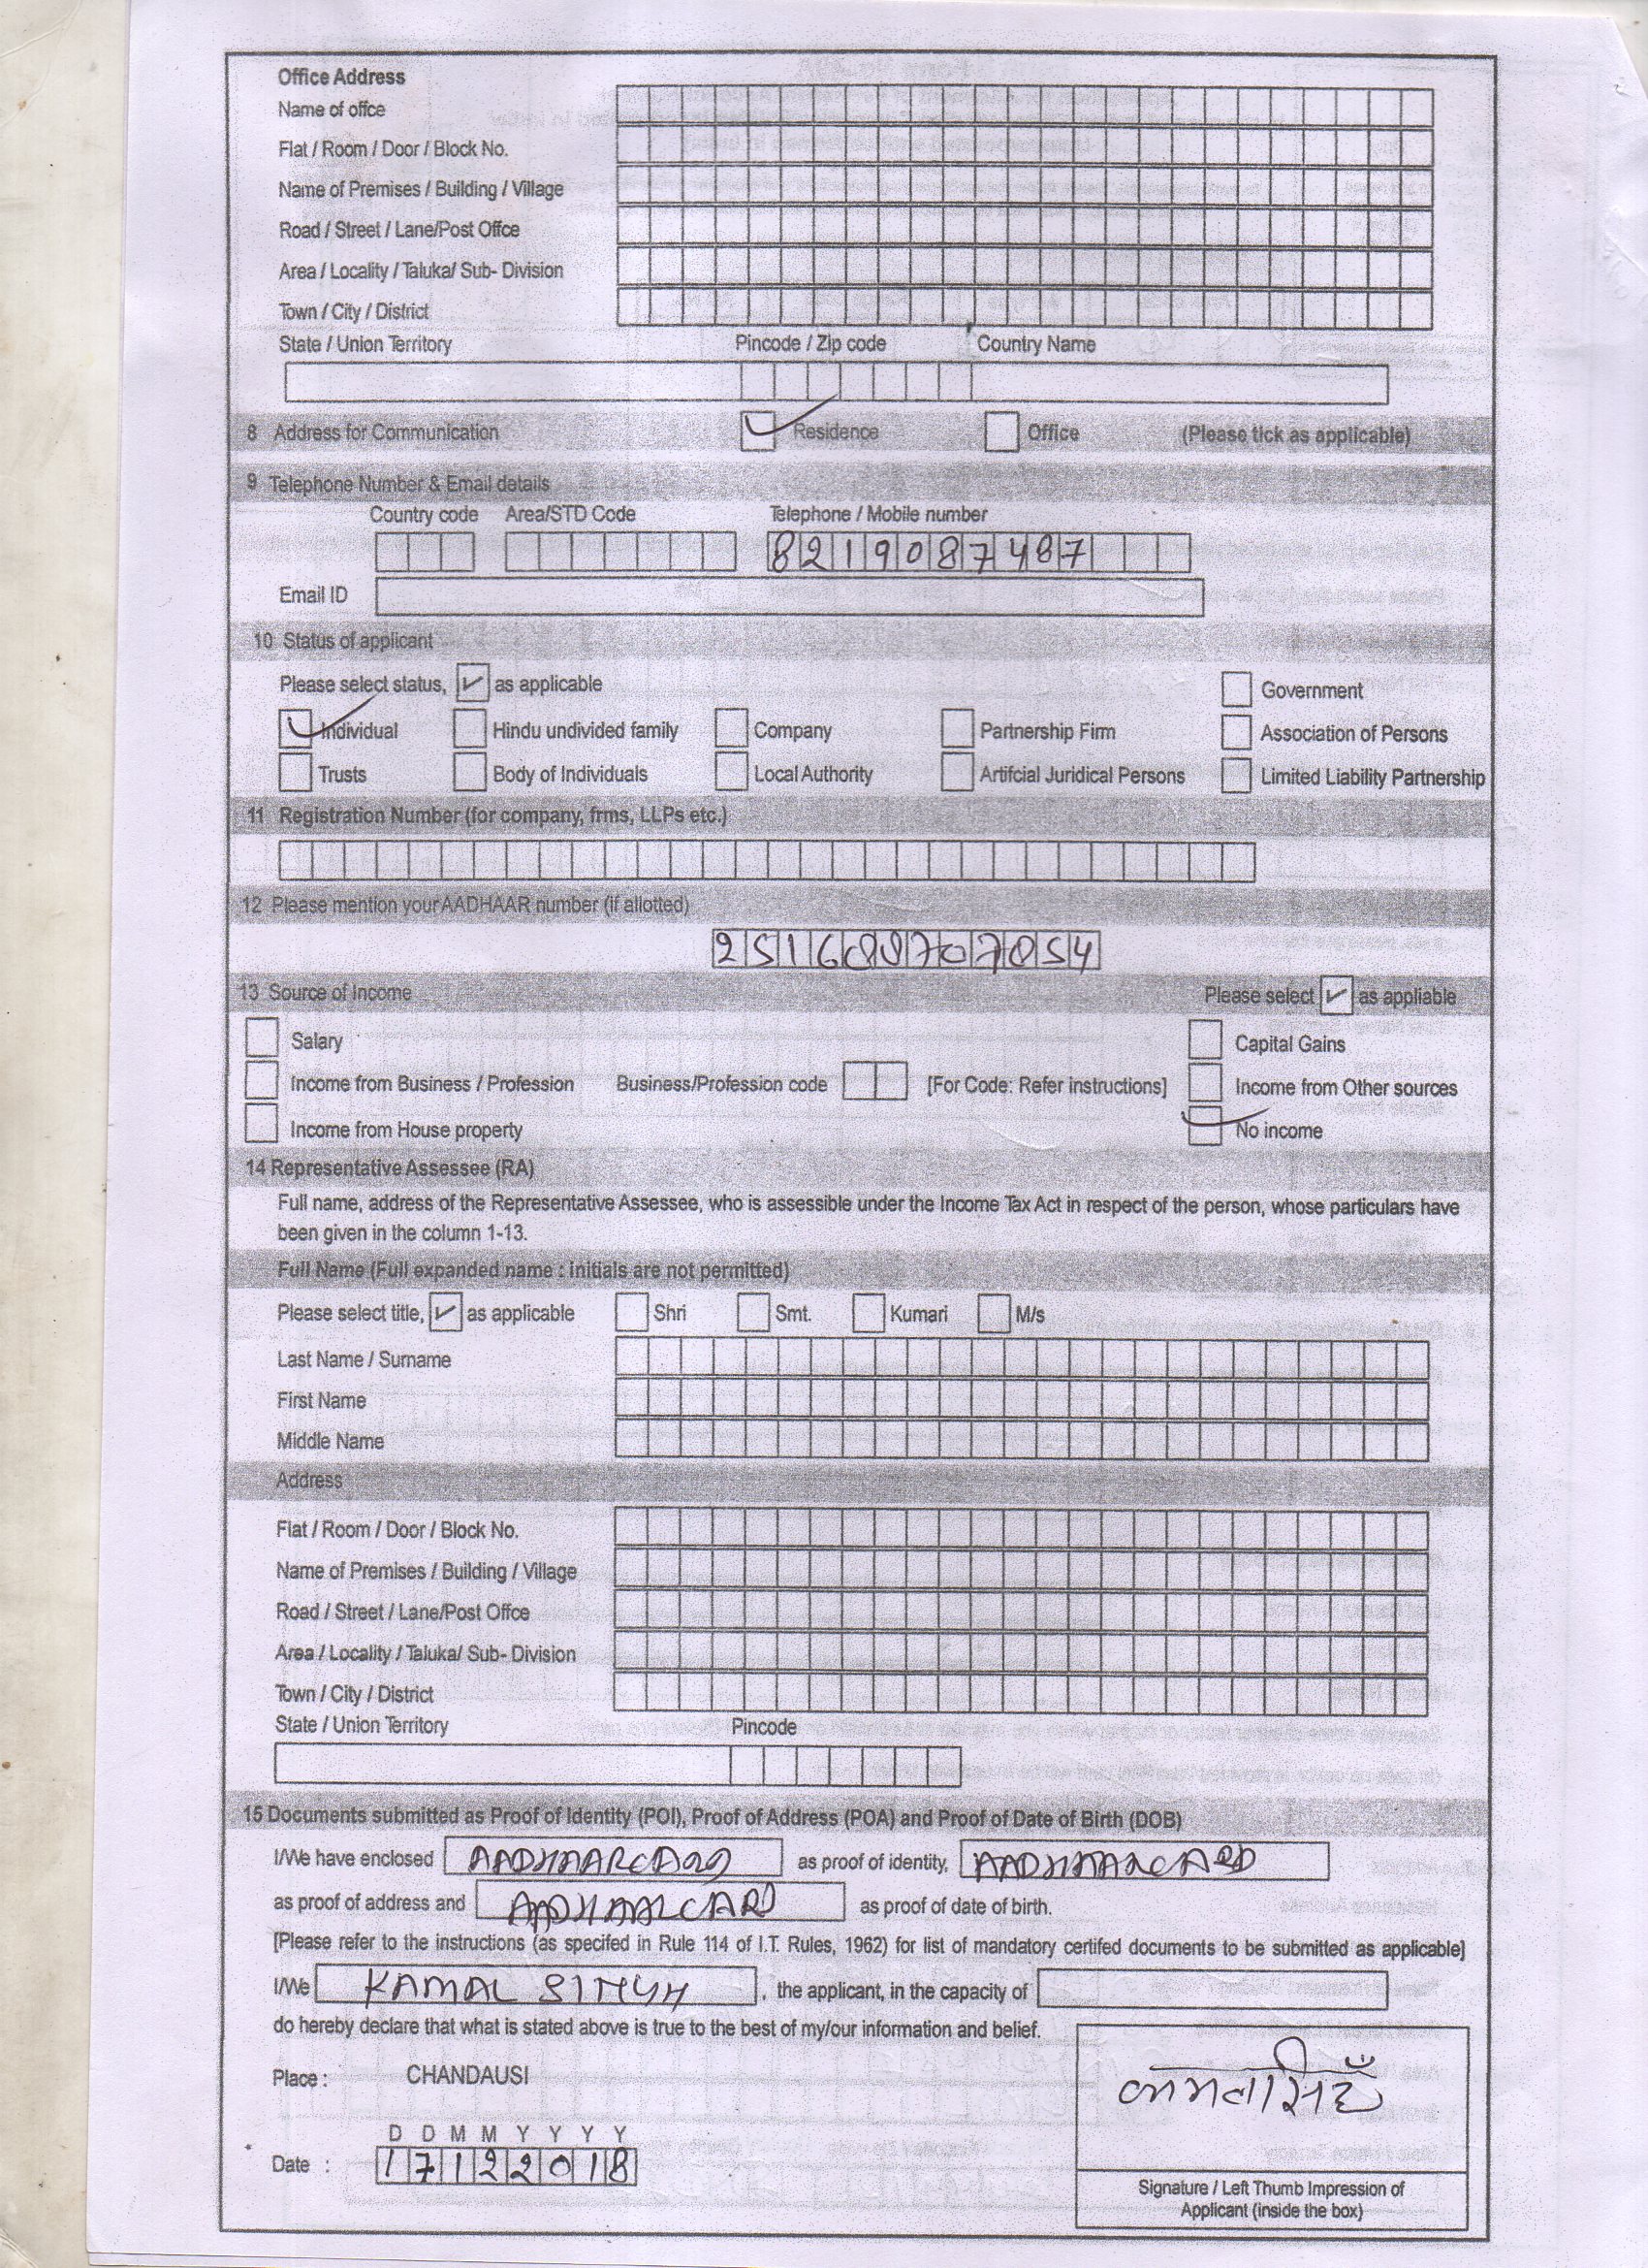 Office Address
Name of offce
Flat / Room / Door / Block No.
Name of Premises / Building / Village
Road / Street / Lane/Post Offce
Area / Locality / Taluka/ Sub- Division
Town / City / District
State / Union Territory Pincode / Zip code Country Name
8 Address for Communication Residence Office (Please tick as applicable)
9 Telephone Number & Email details
Country code Area/STD Code Telephone / Mobile number
8219087487
Email ID
10 Status of applicant
Please select status, ✓ as applicable Government
Individual Hindu undivided family Company Partnership Firm Association of Persons
Trusts Body of Individuals Local Authority Artifcial Juridical Persons Limited Liability Partnership
11 Registration Number (for company, frms, LLPs etc.)
12 Please mention your AADHAAR number (if allotted)
13 Source of Income Please select ✓ as appliable
Salary Capital Gains
Income from Business / Profession Business/Profession code [For Code: Refer instructions] Income from Other sources
Income from House property No income
14 Representative Assessee (RA)
Full name, address of the Representative Assessee, who is assessible under the Income Tax Act in respect of the person, whose particulars have
been given in the column 1-13.
Full Name (Full expanded name : initials are not permitted)
Please select title, ✓ as applicable Shri Smt. Kumari M/s
Last Name / Surname
First Name
Middle Name
Address
Flat / Room / Door / Block No.
Name of Premises / Building / Village
Road / Street / Lane/Post Offce
Area / Locality / Taluka/ Sub- Division
Town / City / District
State / Union Territory Pincode
15 Documents submitted as Proof of Identity (POI), Proof of Address (POA) and Proof of Date of Birth (DOB)
I/We have enclosed AADHAARCARD as proof of identity, AADHAARCARD
as proof of address and AADHAARCARD as proof of date of birth.
[Please refer to the instructions (as specifed in Rule 114 of I.T. Rules, 1962) for list of mandatory certifed documents to be submitted as applicable]
I/We KAMAL SINGH , the applicant, in the capacity of
do hereby declare that what is stated above is true to the best of my/our information and belief.
Place : CHANDAUSI
कमलसिंह
D D M M Y Y Y Y
Date : 17122018
Signature / Left Thumb Impression of
Applicant (inside the box)